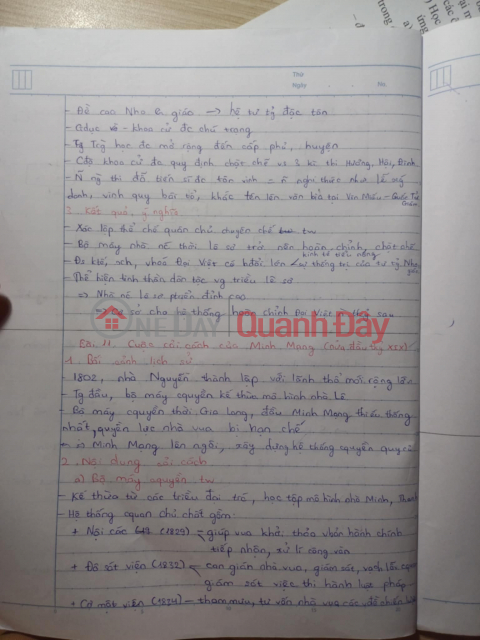 Thứ
Ngày No.
- Đề cao Nho giáo → hệ tư tg độc tôn
- Gdục - khoa cử đc chú trọng
- Tg Tcg học đc mở rộng đến cấp phủ, huyện
- Cđộ khoa cử đc quy định chặt chẽ vs 3 kì thi Hương, Hội, Đình
- N ng thi đỗ tiến sĩ đc tôn vinh = n nghi thức như lễ xg
danh, vinh quy bái tổ, khắc tên lên văn bia tại Văn Miếu - Quốc Tử Giám
3. Kết quả, ý nghĩa
- Xác lập thể chế quân chủ chuyên chế tw
- Bộ máy nhà nc thời Lê sơ trở nên hoàn chỉnh, chặt chẽ
- Đs ktế, xh, vhoá Đại Việt có
kinh tế tiểu nông
sự thống trị của tư tg Nho giáo
- Thể hiện tinh thần dân tộc vg triều Lê sơ
⇒ Nhà nc Lê sơ ptriển đỉnh cao
cơ sở cho hệ thống hành chính Đại Việt sau
ONE DAY Quanh Đây
Bài 11. Cuộc cải cách của Minh Mạng (nửa đầu tkỷ XIX)
1. Bối cảnh lịch sử
- 1802, nhà Nguyễn thành lập với lãnh thổ mở rộng lớn
- Tg đầu, bộ máy cquyền kế thừa mô hình nhà Lê
- Bộ máy cquyền thời Gia Long, đầu Minh Mạng thiếu thống
nhất, quyền lực nhà vua bị hạn chế
Minh Mạng lên ngôi, xây dựng hệ thống cquyền quy củ
2. Nội dung cải cách
a) Bộ máy cquyền tw
- Kế thừa từ các triều đại trc, học tập mô hình nhà Minh, Thanh
- Hệ thống quan chủ chốt gồm:
+ Nội các (1829) - giúp vua khởi thảo vbản hành chính
tiếp nhận, xử lí công văn
+ Đô sát viện (1832) can gián nhà vua, giám sát,
giám sát việc thi hành luật pháp
+ Cơ mật viện (1834) - tham mưu, tư vấn nhà vua các vđề chiến lược